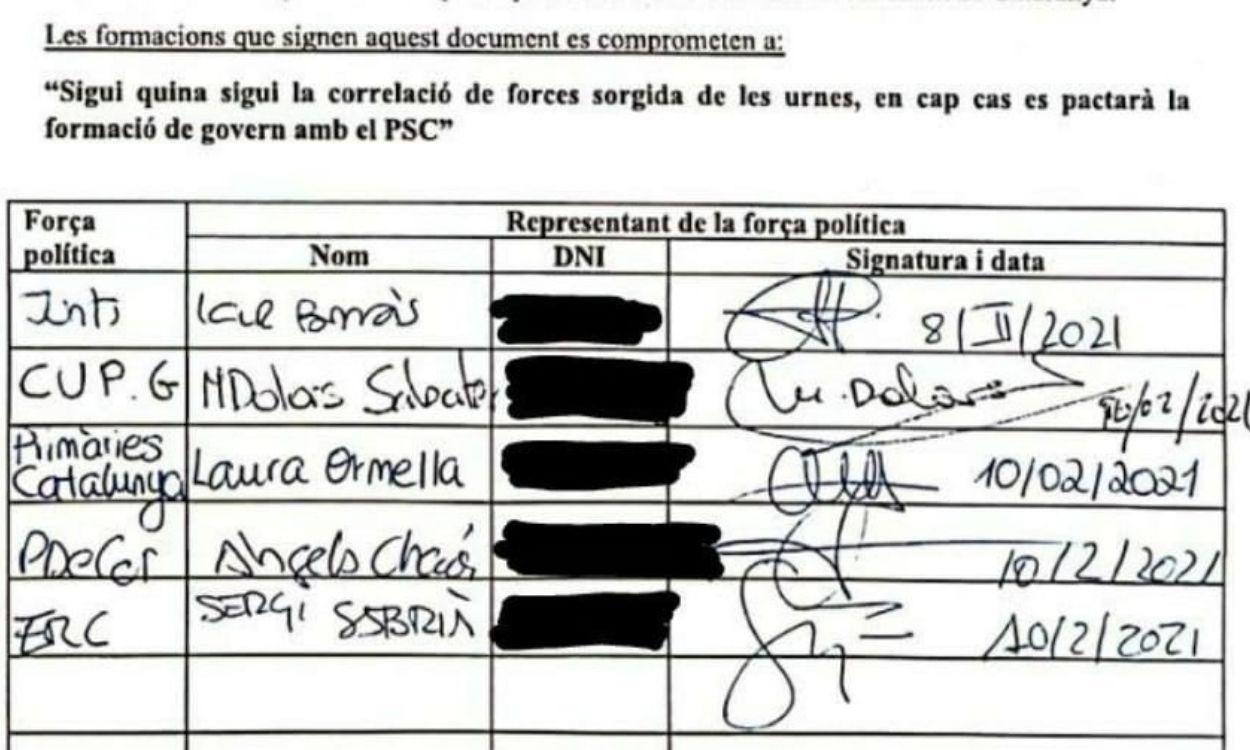 Les formacions que signen aquest document es comprometen a:
“Sigui quina sigui la correlació de forces sorgida de les urnes, en cap cas es pactarà la
formació de govern amb el PSC”
Força política
Representant de la força política
Nom DNI Signatura i data
Junts Borràs 8/II/2021
CUP.G MDolors Sabater M. Dolors /02/2021
Primàries
Catalunya Laura Ormella 10/02/2021
PDeCat Àngels Chacón 10/2/2021
ERC SERGI SABRIÀ 10/2/2021